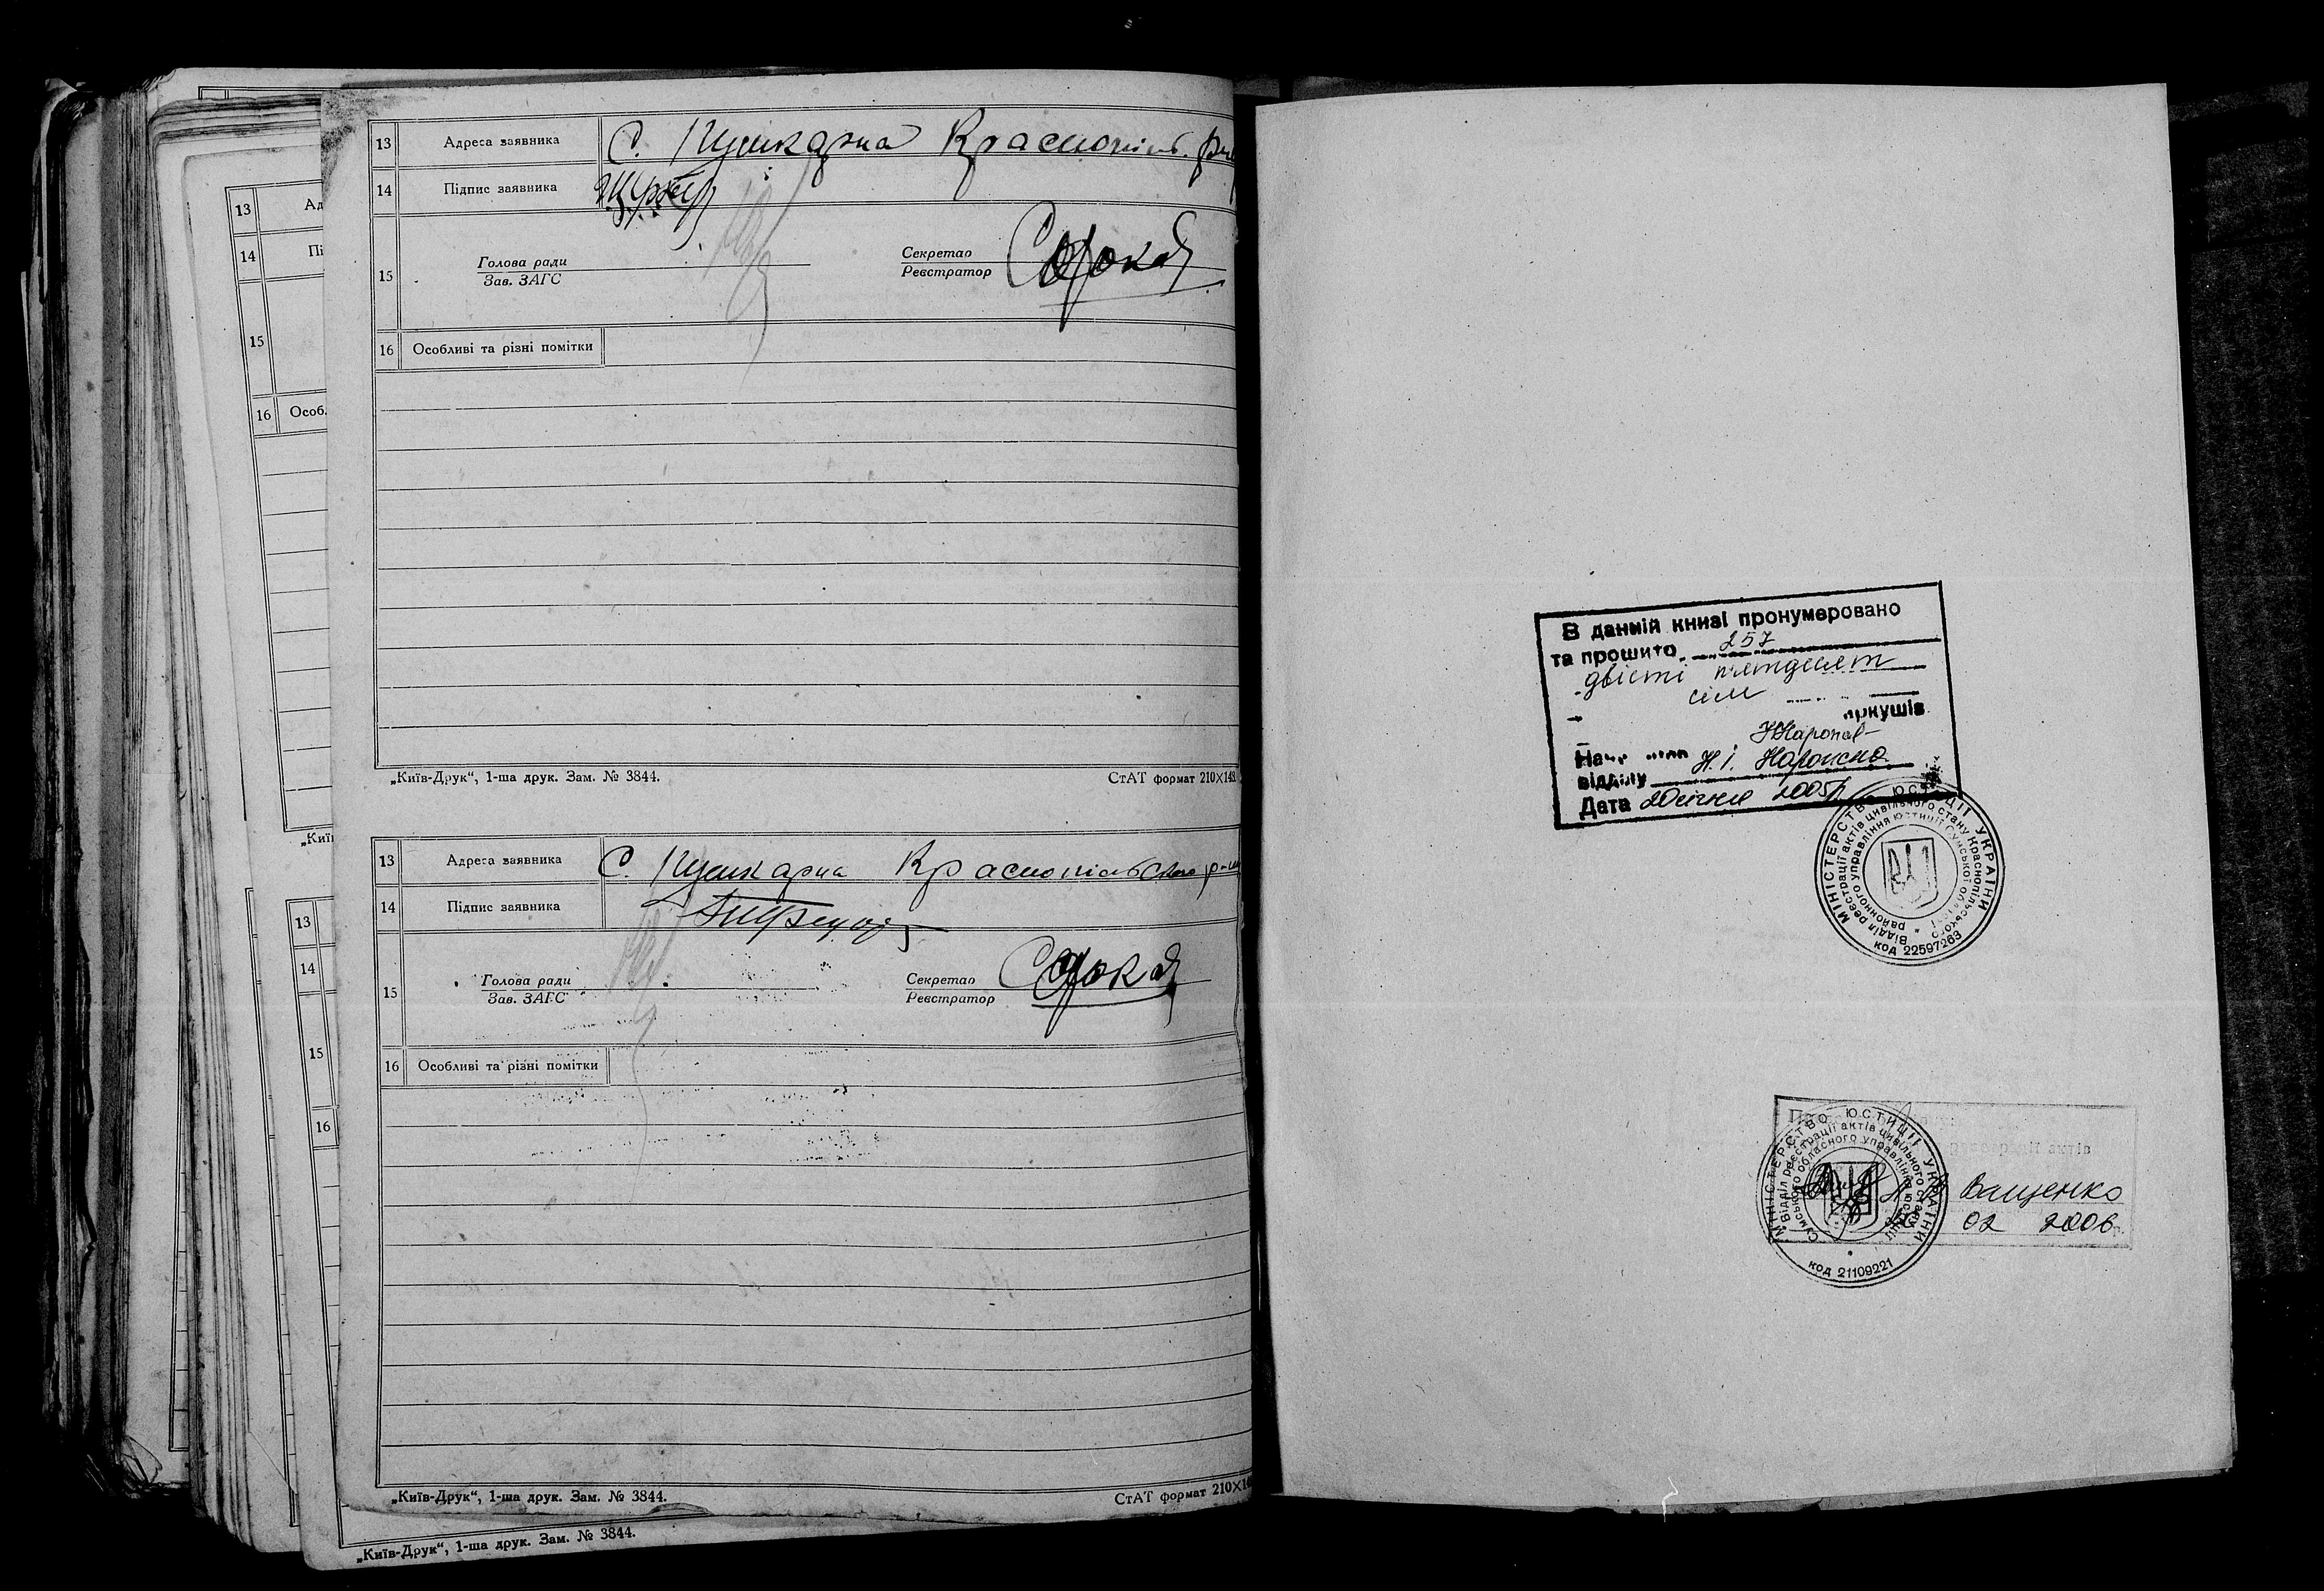 13 Адреса заявника С. Пушкарна Краснопіль.
14 Підпис заявника
15 Голова ради Секретар
Зав. ЗАГС Реєстратор Сорока
16 Особливі та різні помітки
„Київ-Друк“, 1-ша друк. Зам. № 3844. СтАТ формат 210×148
13 Адреса заявника С. Пушкарна Краснопільського р-ну
14 Підпис заявника
15 Голова ради Секретар
Зав. ЗАГС Реєстратор Сорока
16 Особливі та різні помітки
„Київ-Друк“, 1-ша друк. Зам. № 3844. СтАТ формат
„Київ-Друк“, 1-ша друк. Зам. № 3844.
13
14
15
16 Особ.
13
14
15
16
В данній книзі пронумеровано
та прошито 257
двісті пятдесят
сім
аркушів
відділу Н. І.
Дата 20 січня 2005р
МІНІСТЕРСТВО ЮСТИЦІЇ УКРАЇНИ
Відділ реєстрації актів цивільного стану Краснопільського
районного управління юстиції Сумської області
код 22597263
МІНІСТЕРСТВО ЮСТИЦІЇ УКРАЇНИ
Відділ реєстрації актів цивільного стану
Сумського обласного управління юстиції
код 21109221
актів
Ващенко
02 2006